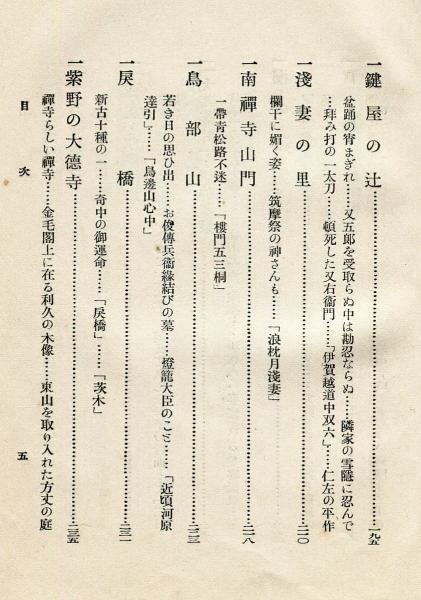 一鍵屋の辻……………………一九五
盆踊の宵まぎれ……又五郎を受取らぬ中は勘忍ならぬ……隣家の雪隱に忍んで
…拜み打の一太刀……頓死した又右衞門……「伊賀越道中双六」……仁左の平作
一淺妻の里……………………二一〇
欄干に媚く姿……筑摩祭の神さんも……「浪枕月淺妻」
一南禪寺山門……………………二一八
一帶靑松路不迷……「樓門五三桐」
一鳥部山……………………二二三
若き日の思ひ出……お俊傳兵衞緣結びの墓……燈籠大臣のこと……「近頃河原
達引」……「鳥邊山心中」
一戾橋……………………二三一
新古十種の一……奇中の御運命……「戾橋」……「茨木」
一紫野の大德寺……………………二三五
禪寺らしい禪寺……金毛閣上に在る利久の木像……東山を取り入れた方丈の庭
目次
五